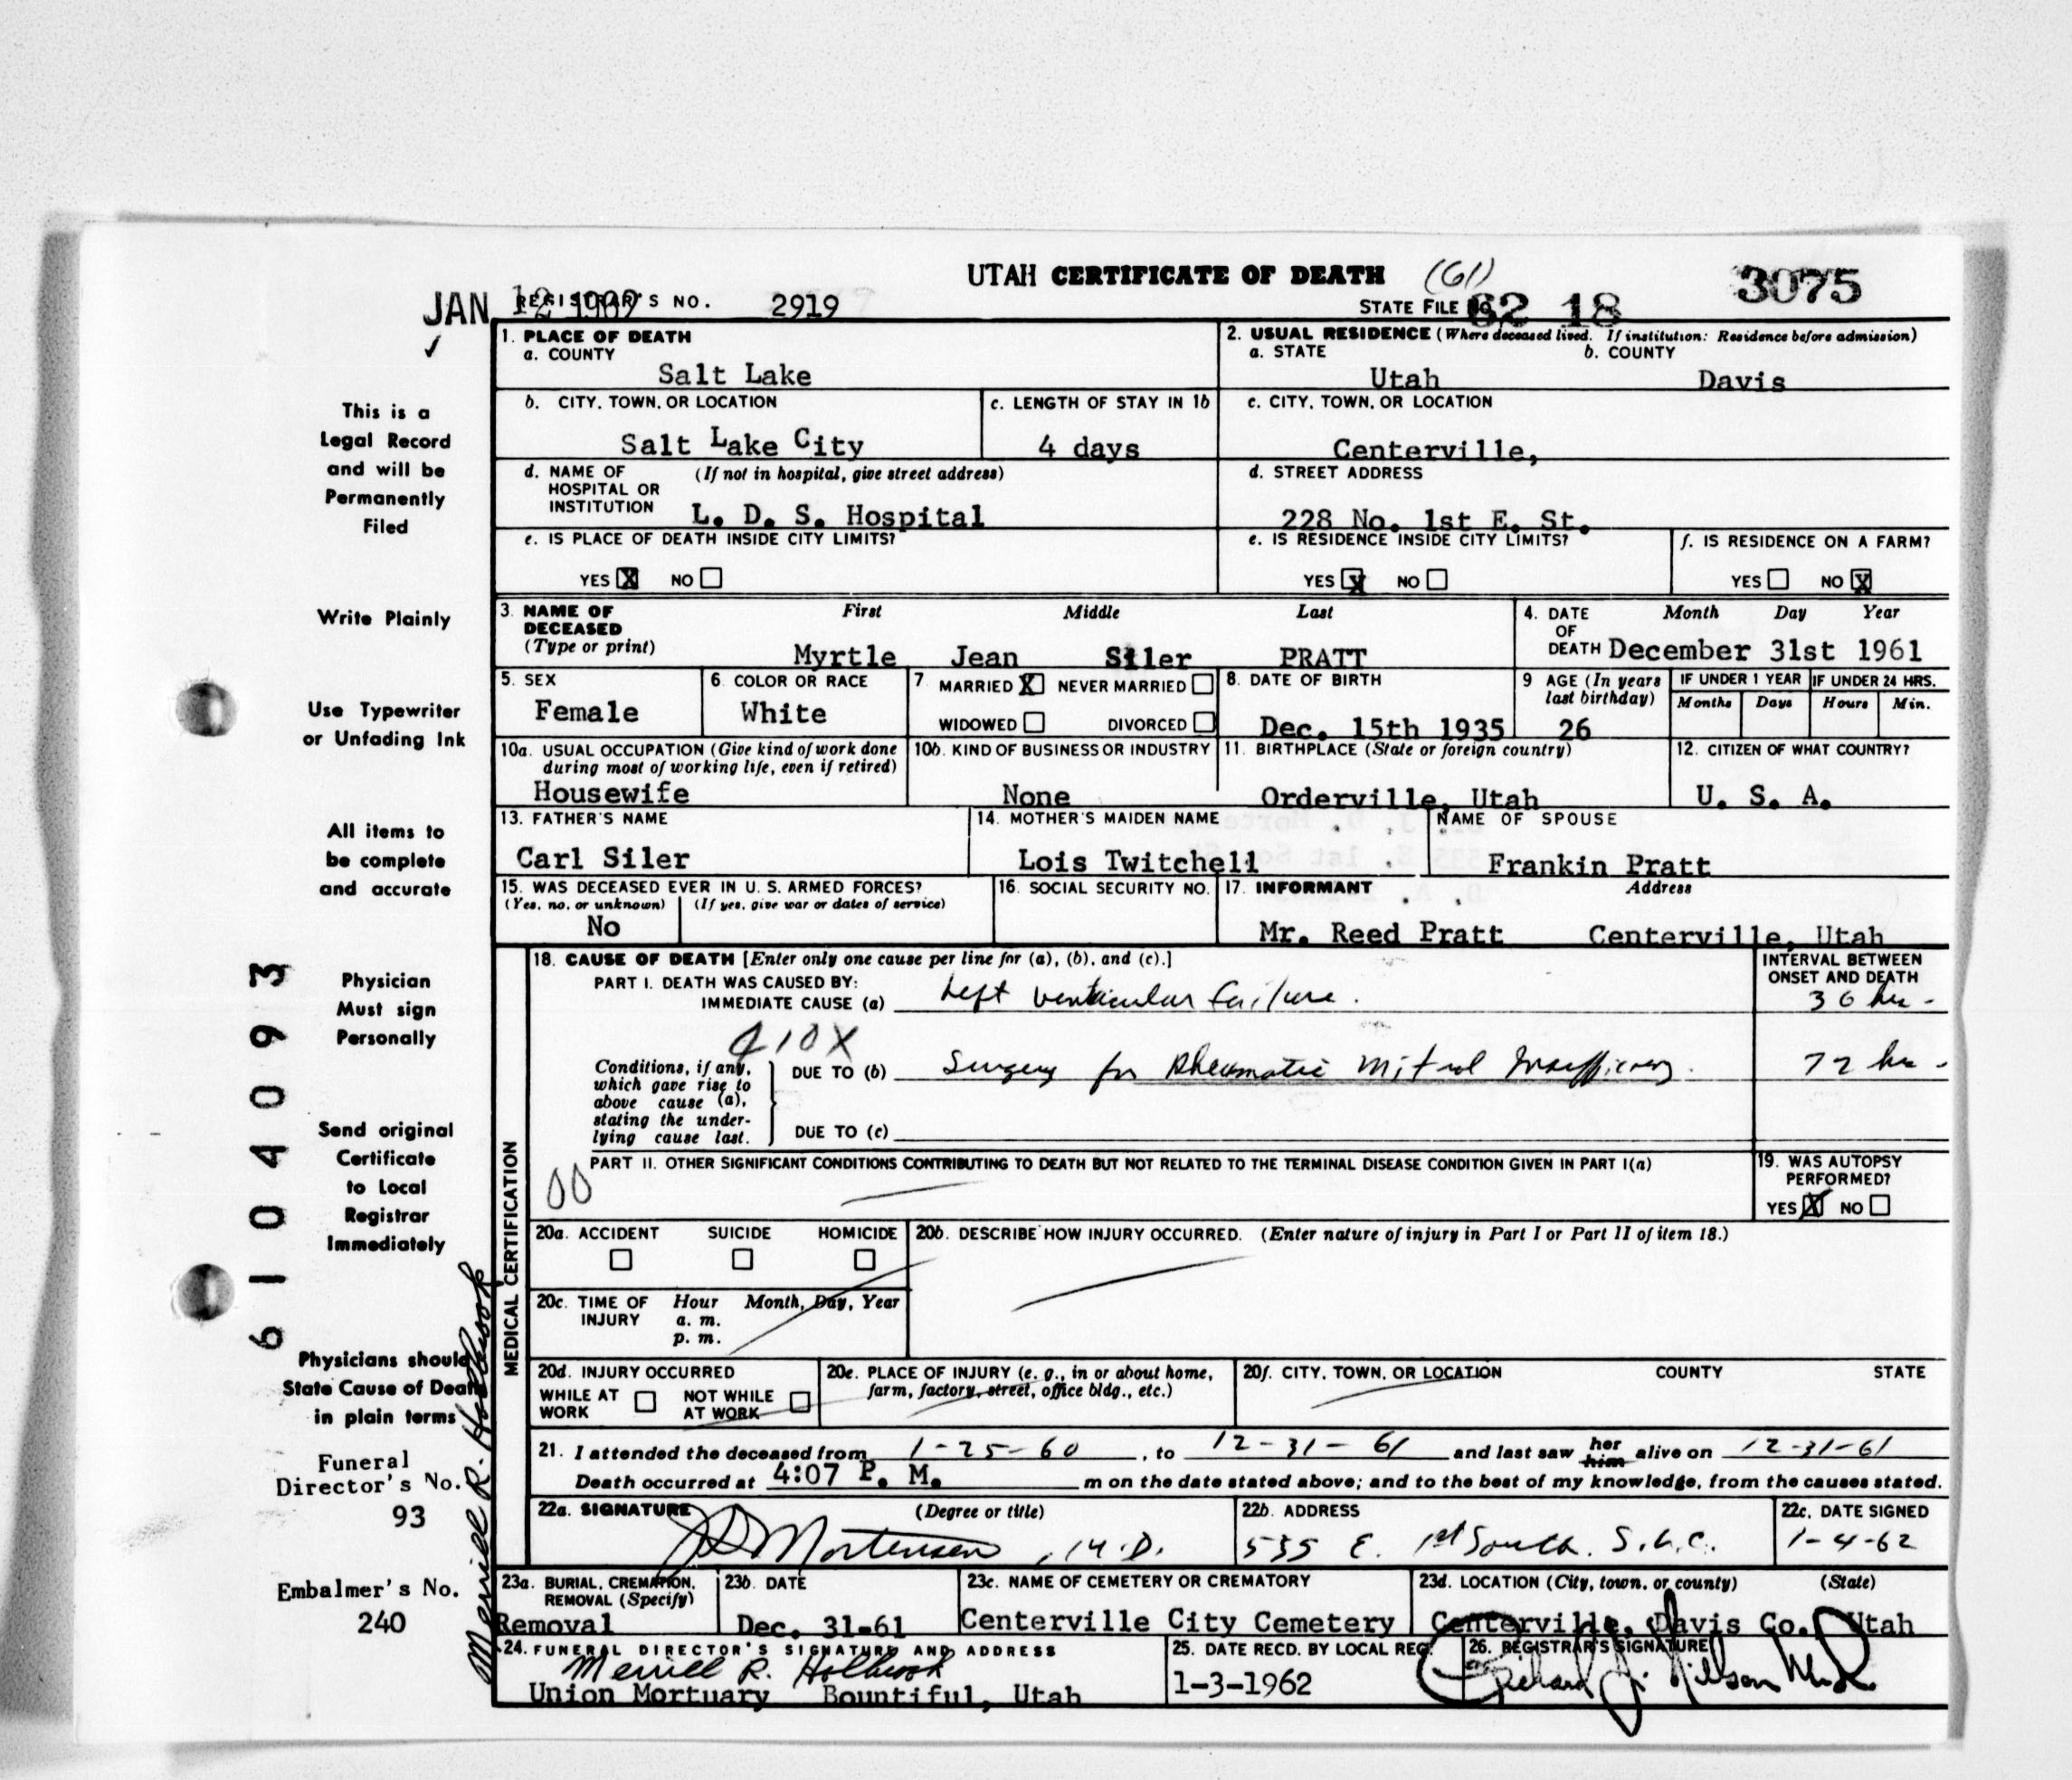 UTAH CERTIFICATE OF DEATH (61) 3075
JAN 12 1962 REGISTRAR'S NO. 2919 STATE FILE NO. 62 18
1. PLACE OF DEATH
a. COUNTY
Salt Lake
2. USUAL RESIDENCE (Where deceased lived. If institution: Residence before admission)
a. STATE b. COUNTY
Utah Davis
b. CITY, TOWN, OR LOCATION
Salt Lake City
c. LENGTH OF STAY IN 1b
4 days
c. CITY, TOWN, OR LOCATION
Centerville,
d. NAME OF HOSPITAL OR INSTITUTION (If not in hospital, give street address)
L. D. S. Hospital
d. STREET ADDRESS
228 No. 1st E. St.
e. IS PLACE OF DEATH INSIDE CITY LIMITS?
YES X NO
e. IS RESIDENCE INSIDE CITY LIMITS?
YES X NO
f. IS RESIDENCE ON A FARM?
YES NO X
3. NAME OF DECEASED (Type or print)
First Middle Last
Myrtle Jean Siler PRATT
4. DATE OF DEATH Month Day Year
December 31st 1961
5. SEX
Female
6. COLOR OR RACE
White
7. MARRIED X NEVER MARRIED
WIDOWED DIVORCED
8. DATE OF BIRTH
Dec. 15th 1935
9 AGE (In years last birthday)
26
IF UNDER 1 YEAR IF UNDER 24 HRS.
Months Days Hours Min.
10a. USUAL OCCUPATION (Give kind of work done during most of working life, even if retired)
Housewife
10b. KIND OF BUSINESS OR INDUSTRY
None
11. BIRTHPLACE (State or foreign country)
Orderville, Utah
12. CITIZEN OF WHAT COUNTRY?
U. S. A.
13. FATHER'S NAME
Carl Siler
14. MOTHER'S MAIDEN NAME
Lois Twitchell
NAME OF SPOUSE
Frankin Pratt
15. WAS DECEASED EVER IN U. S. ARMED FORCES?
(Yes, no, or unknown) (If yes, give war or dates of service)
No
16. SOCIAL SECURITY NO.
17. INFORMANT Address
Mr. Reed Pratt Centerville, Utah
MEDICAL CERTIFICATION
18. CAUSE OF DEATH [Enter only one cause per line for (a), (b), and (c).]
INTERVAL BETWEEN ONSET AND DEATH
PART I. DEATH WAS CAUSED BY:
IMMEDIATE CAUSE (a) Left ventricular failure. 36 hr-
410X
Conditions, if any, which gave rise to above cause (a), stating the underlying cause last.
DUE TO (b) Surgery for Rheumatic Mitral Insufficiency. 72 hr-
DUE TO (c)
PART II. OTHER SIGNIFICANT CONDITIONS CONTRIBUTING TO DEATH BUT NOT RELATED TO THE TERMINAL DISEASE CONDITION GIVEN IN PART I(a)
00
19. WAS AUTOPSY PERFORMED?
YES X NO
20a. ACCIDENT SUICIDE HOMICIDE
20b. DESCRIBE HOW INJURY OCCURRED. (Enter nature of injury in Part I or Part II of item 18.)
20c. TIME OF INJURY Hour Month, Day, Year
a. m.
p. m.
20d. INJURY OCCURRED
WHILE AT WORK NOT WHILE AT WORK
20e. PLACE OF INJURY (e. g., in or about home, farm, factory, street, office bldg., etc.)
20f. CITY, TOWN, OR LOCATION COUNTY STATE
21. I attended the deceased from 1-25-60, to 12-31-61 and last saw her him alive on 12-31-61
Death occurred at 4:07 P. M. m on the date stated above; and to the best of my knowledge, from the causes stated.
22a. SIGNATURE (Degree or title)
JD Mortensen, M.D.
22b. ADDRESS
535 E. 1st South. S.L.C.
22c. DATE SIGNED
1-4-62
23a. BURIAL, CREMATION, REMOVAL (Specify)
Removal
23b. DATE
Dec. 31-61
23c. NAME OF CEMETERY OR CREMATORY
Centerville City Cemetery
23d. LOCATION (City, town, or county) (State)
Centerville, Davis Co. Utah
24. FUNERAL DIRECTOR'S SIGNATURE AND ADDRESS
Merrill R. Holbrook
Union Mortuary Bountiful, Utah
25. DATE RECD. BY LOCAL REG.
1-3-1962
26. REGISTRAR'S SIGNATURE
This is a
Legal Record
and will be
Permanently
Filed
Write Plainly
Use Typewriter
or Unfading Ink
All items to
be complete
and accurate
Physician
Must sign
Personally
Send original
Certificate
to Local
Registrar
Immediately
Physicians should
State Cause of Death
in plain terms
Funeral
Director's No.
93
Embalmer's No.
240
6104093
Merrill R. Holbrook